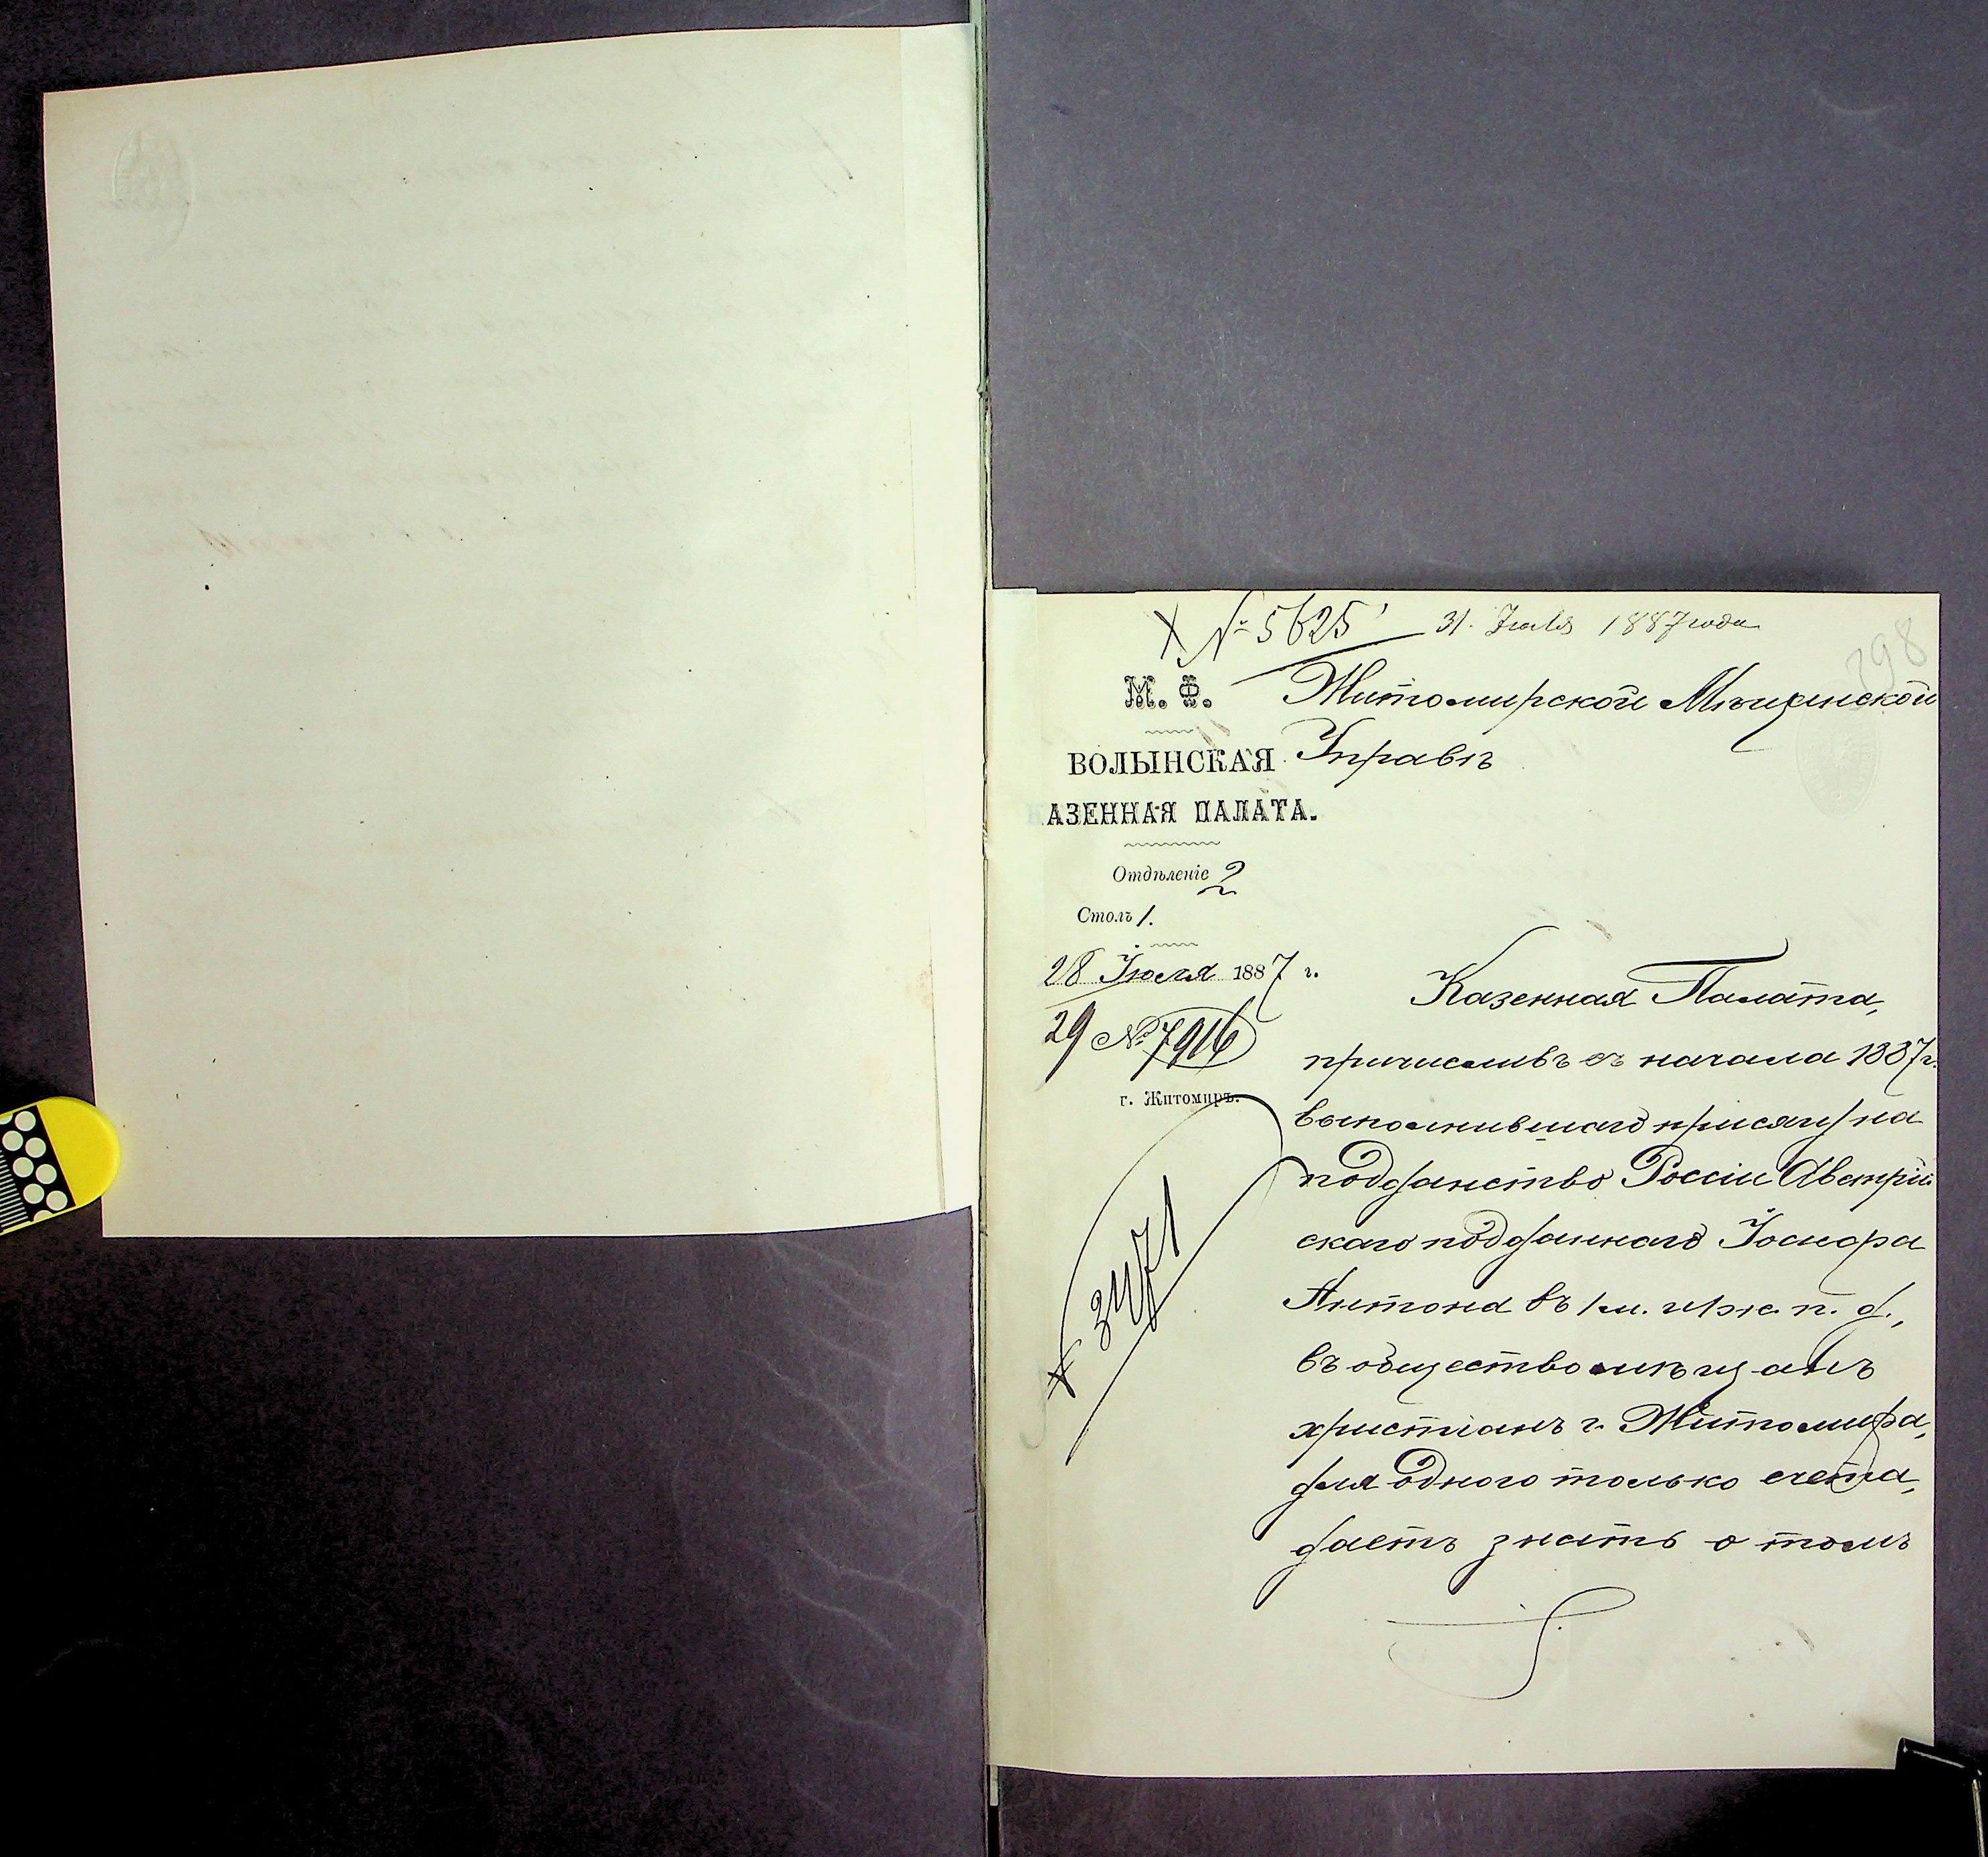 № 5625 31. Июля 1887 года
398
М. Ф.
ВОЛЫНСКАЯ
АЗЕННАЯ ПАЛАТА.
Отдѣленіе 2
Столъ 1.
28 Июля 1887 г.
29 № 7916
г. Житомиръ.
3471
Житомирской Мѣщанской
Управѣ
Казенная Палата,
причисливъ съ начала 1887 г.
выполнившаго присягу на
подданство Россіи Австрій
скаго подданнаго Іосифа
Антона въ 1 м. и 1 ж. п. д.,
въ общество мѣщанъ
христіанъ г. Житомира,
для одного только счета,
даетъ знать о томъ